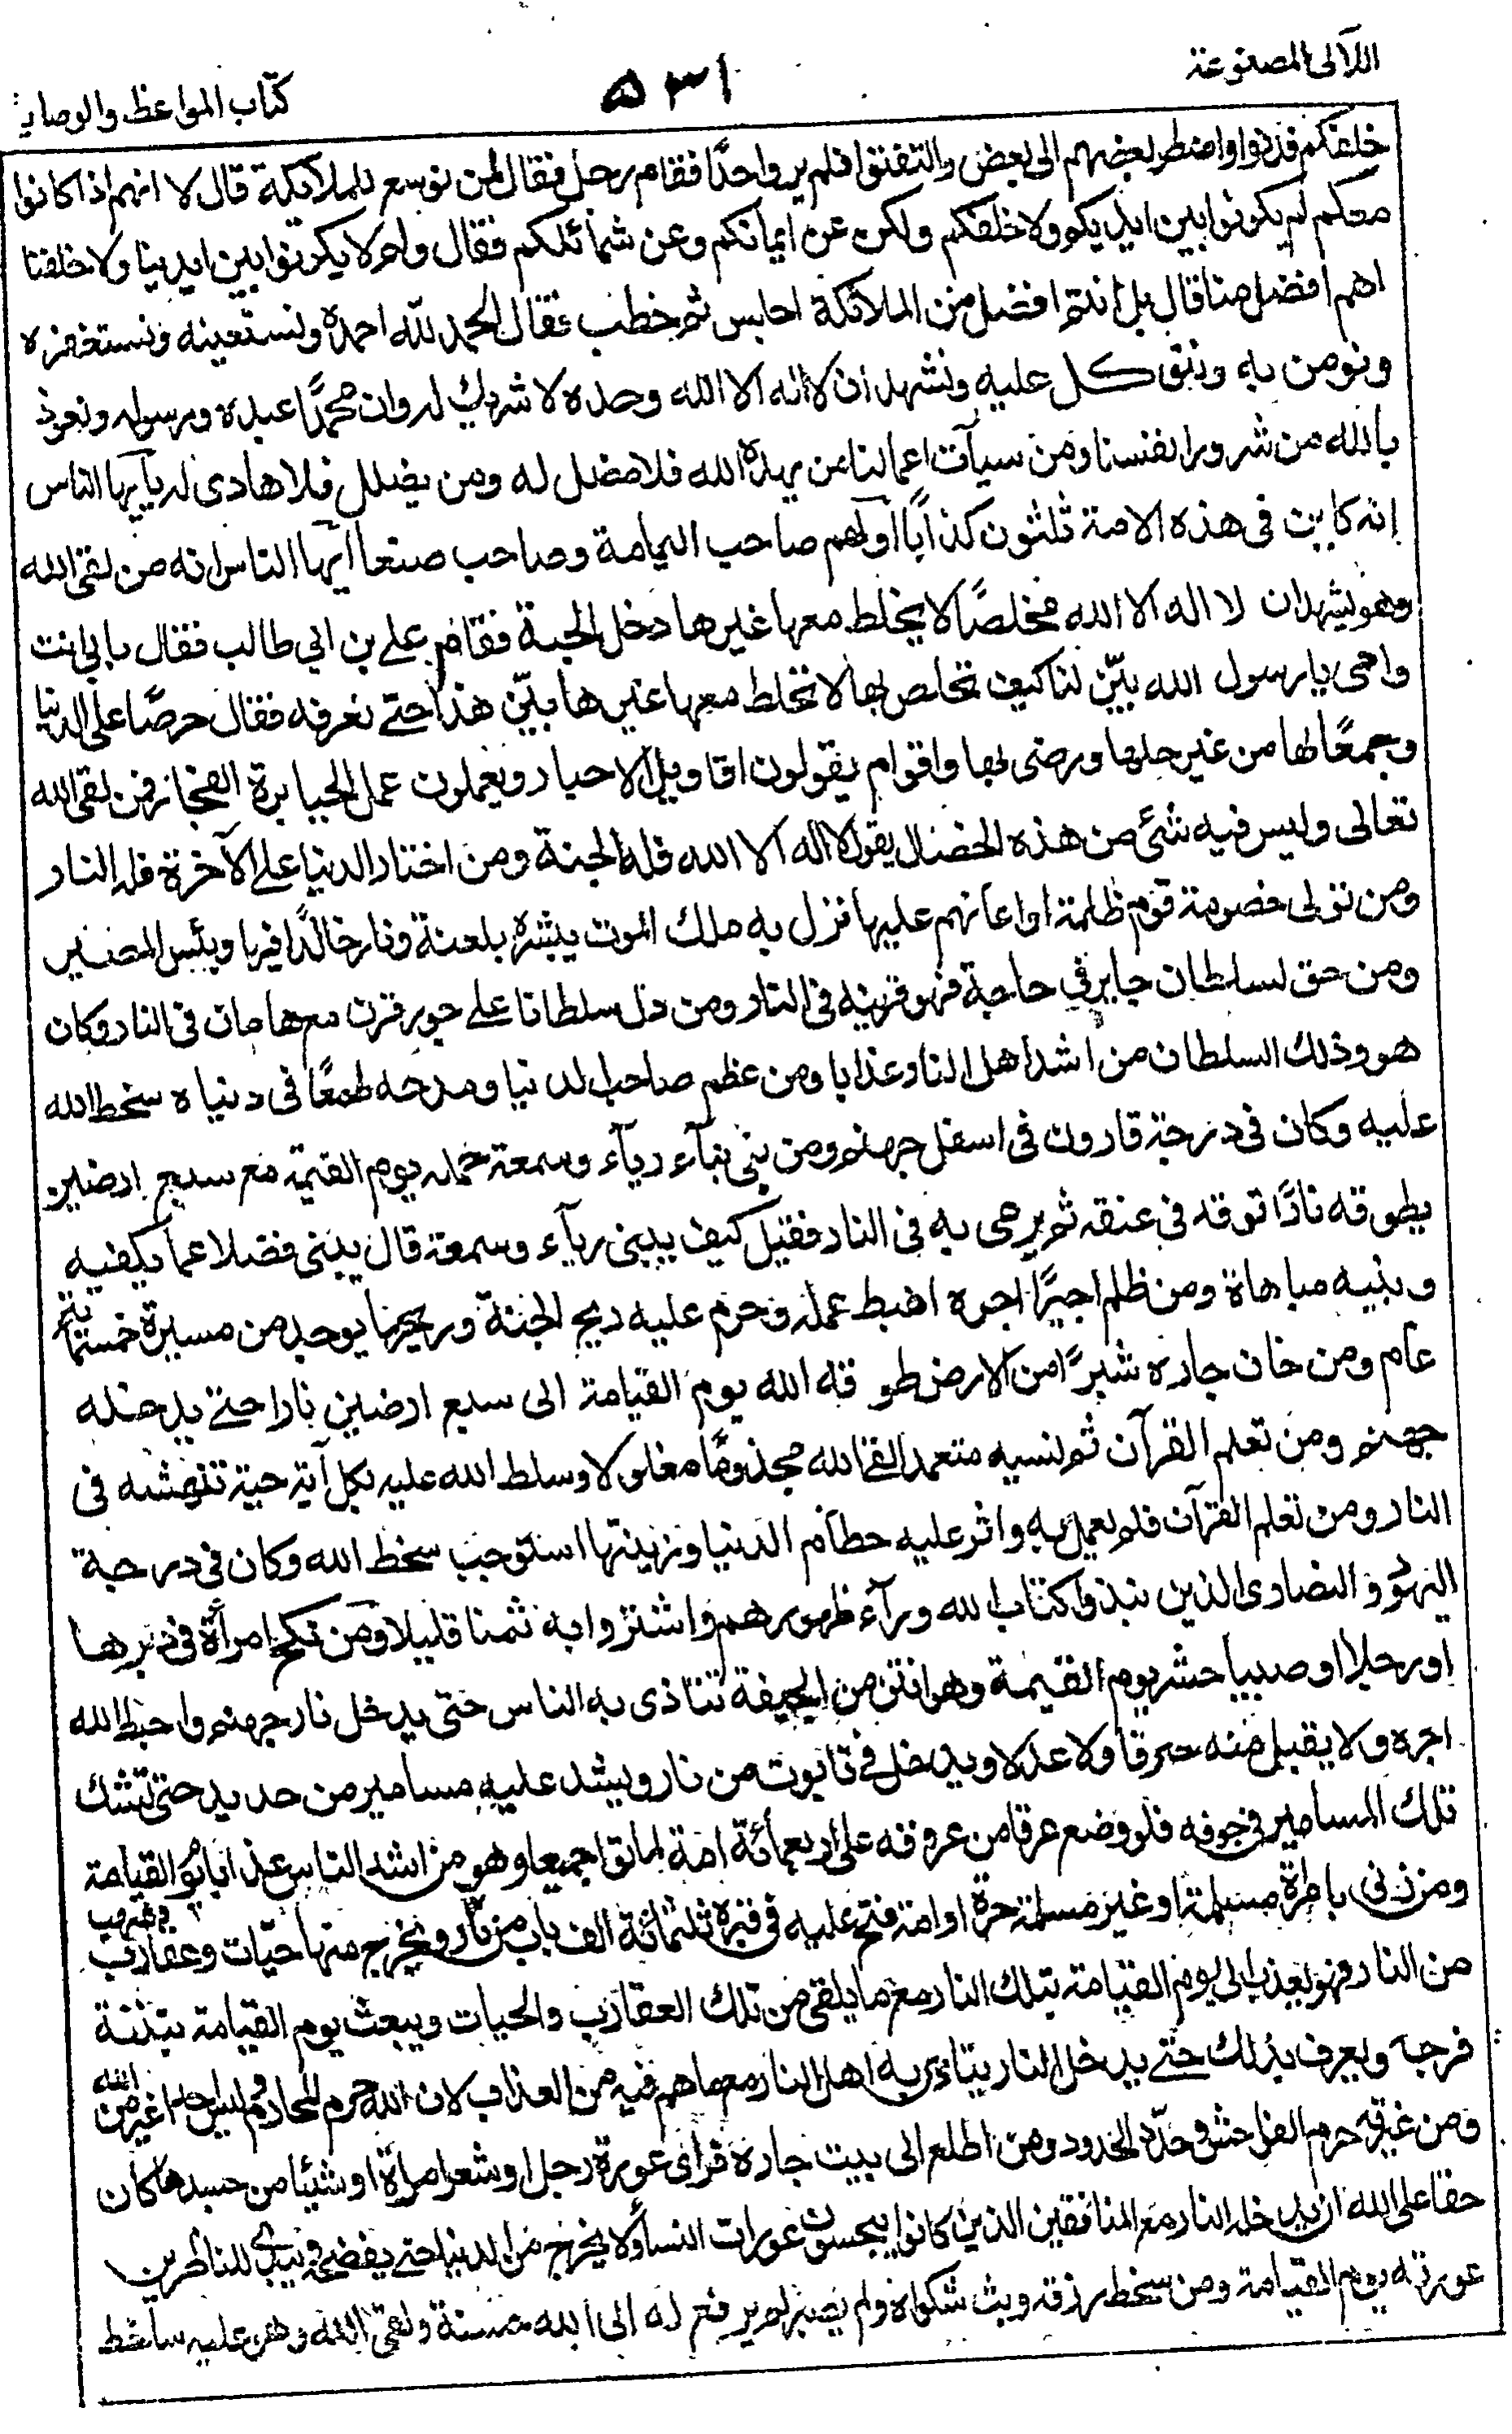 اللآلى المصنوعة
٥٣١
كتاب المواعظ والوصايا
خلفكم فدنوا واضطر بعضهم الى بعض والتفتوا فلم يروا احدًا فقام رجل فقال لمن نوسع للملائكة قال لا انهم اذا كانوا
معكم لم يكونوا بين ايديكم ولا خلفكم ولكن عن ايمانكم وعن شمائلكم فقال ولم لا يكونوا بين ايدينا ولا خلفنا
اهم افضل منا قال بل انتم افضل من الملائكة اجلس ثم خطب فقال الحمد لله احمده ونستعينه ونستغفره
ونومن به ونتوكل عليه ونشهد ان لا اله الا الله وحده لا شريك له وان محمدًا عبده ورسوله ونعوذ
بالله من شرور انفسنا ومن سيآت اعمالنا من يهده الله فلا مضل له ومن يضلل فلا هادى له يآيها الناس
انه كاين فى هذه الامة ثلثون كذابًا اولهم صاحب اليمامة وصاحب صنعا ايها الناس انه من لقى الله
وهو يشهد ان لا اله الا الله مخلصًا لا يخلط معها غيرها دخل الجنة فقام علي بن ابي طالب فقال بابي انت
وامى يا رسول الله بيّن لنا كيف نخلص بها لا نخلط معها غيرها بيّن هذا حتى نعرفه فقال حرصًا على الدنيا
وجمعًا لها من غير حلها ورضى بها واقوام يقولون اقاويل الاخيار ويعملون عمل الجبابرة الفجار فمن لقى الله
تعالى وليس فيه شئ من هذه الخصال يقول لا اله الا الله فله الجنة ومن اختار الدنيا على الآخرة فله النار
ومن تولى خصومة قوم ظلمة او اعانهم عليها نزل به ملك الموت يبشره بلعنة ونار خالدًا فيها وبئس المصير
ومن خف لسلطان جاير في حاجة فهو قرينه فى النار ومن دل سلطانا على جور قرن مع هامان فى النار وكان
هو وذلك السلطان من اشد اهل النار عذابا ومن عظم صاحب الدنيا ومدحه طمعًا فى دنياه سخط الله
عليه وكان فى درجة قارون فى اسفل جهنم ومن بنى بنآء ريآء وسمعة حمله يوم القيمة مع سبع ارضين
يطوقه نارًا توقد فى عنقه ثم يرمى به فى النار فقيل كيف يبنى ريآء وسمعة قال يبنى فضلا عما يكفيه
ويبنيه مباهاة ومن ظلم اجيرًا اجره احبط عمله وحرم عليه ريح الجنة وريحها يوجد من مسيرة خمسمائة
عام ومن خان جاره شبرًا من الارض طوقه الله يوم القيامة الى سبع ارضين نارا حتى يدخله
جهنم ومن تعلم القرآن ثم نسيه متعمدا لقى الله مجذومًا مغلولا وسلط الله عليه بكل آية حية تنهشه فى
النار ومن تعلم القرآن فلم يعمل به واثر عليه حطام الدنيا وزينتها استوجب سخط الله وكان فى درجة
اليهود والنصارى الذين نبذوا كتاب الله ورآء ظهورهم واشتروا به ثمنا قليلا ومن نكح امرأة فى دبرها
او رجلا او صبيا حشر يوم القيمة وهو انتن من الجيفة تتاذى به الناس حتى يدخل نار جهنم واحبط الله
اجره ولا يقبل منه صرفا ولا عدلا ويدخل فى تابوت من نار ويشد عليه مسامير من حديد حتى تشك
تلك المسامير فى جوفه فلو وضع عرقا من عروقه على اربعمائة امة لماتوا جميعا وهو من اشد الناس عذابا يوم القيامة
ومن زنى بامرأة مسلمة او غير مسلمة حرة او امة فتح عليه فى قبره ثلثمائة الف باب من نار ويخرج منها حيّات وعقارب وشهب
من النار فهو يعذب الى يوم القيامة بتلك النار مع ما يلقى من تلك العقارب والحيات ويبعث يوم القيامة بنتنة
فرجه ويعرف بذلك حتى يدخل النار يتاذى به اهل النار مع ما هم فيه من العذاب لان الله حرم المحارم وليس احد اغير من الله
ومن غيرته حرم الفواحش وحدّد الحدود ومن اطلع الى بيت جاره فراى عورة رجل او شعر امرأة او شيئا من جسدها كان
حقا على الله ان يدخله النار مع المنافقين الذين كانوا يبحسون عورات النسا ولا يخرج من الدنيا حتى يفضحه ويبدى للناظرين
عورته يوم القيامة ومن سخط رزقه وبث شكواه ولم يصبر لم يرفع له الى الله حسنة ولقى الله وهو عليه ساخط